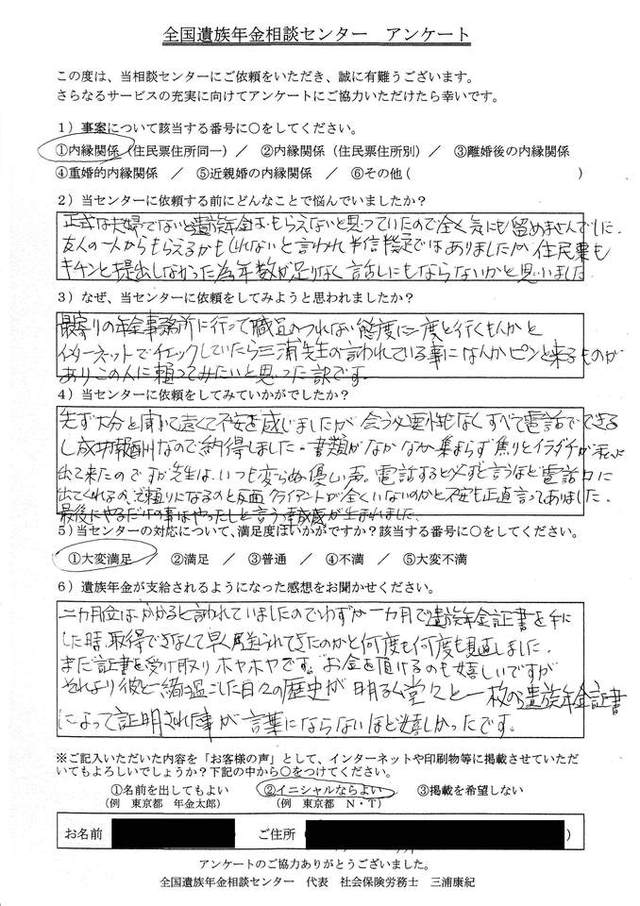 全国遺族年金相談センター　アンケート
この度は、当相談センターにご依頼をいただき、誠に有難うございます。
さらなるサービスの充実に向けてアンケートにご協力いただけたら幸いです。
1）事案について該当する番号に○をしてください。
①内縁関係（住民票住所同一）／　②内縁関係（住民票住所別）／　③離婚後の内縁関係
④重婚的内縁関係　／　⑤近親婚の内縁関係　／　⑥その他（　　　　　　　　　　）
2）当センターに依頼する前にどんなことで悩んでいましたか？
正式な夫婦でないと遺族年金は、もらえないと思っていたので全く気にも留めませんでした。
友人の一人からもらえるかもしれないと言われ半信半疑ではありましたが　住民票も
キチンと提出しなかった為年数が足りなく話しにもならないかと思いました
3）なぜ、当センターに依頼をしてみようと思われましたか？
最寄りの年金事務所に行って職員のつれない態度に二度と行くもんかと
インターネットでチェックしていたら三浦先生の言われている事になんかピンと来るものが
ありこの人に頼ってみたいと思った訳です。
4）当センターに依頼をしてみていかがでしたか？
先ず大分と聞いて遠くて不安を感じましたが　会う必要性もなくすべて電話でできる
し成功報酬なので納得しました。書類がなかなか集まらず焦りとイラダチが
出て来たのですが先生は、いつも変らぬ優しい声。電話すると必ずと言うほど電話口に
出てくれるので頼りになるのと反面クライアントが全くいないのかと不安も正直言ってありました。
最後にやるだけの事はやったしと言う達成感が生まれました。
5）当センターの対応について、満足度はいかがですか？該当する番号に○をしてください。
①大変満足　／　②満足　／　③普通　／　④不満　／　⑤大変不満
6）遺族年金が支給されるようになった感想をお聞かせください。
二カ月位はかかると言われていましたのでわずか一カ月で遺族年金証書を手に
した時、取得できなくて早く送られてきたのかと何度も何度も見直しました。
まだ証書を受け取りホヤホヤです。お金を頂けるのも嬉しいですが
それより彼と一緒に過ごした日々の歴史が　明るく堂々と一枚の遺族年金証書
によって証明された事が言葉にならないほど嬉しかったです。
※ご記入いただいた内容を「お客様の声」として、インターネットや印刷物等に掲載させていただ
いてもよろしいでしょうか？下記の中から○をつけてください。
①名前を出してもよい　　②イニシャルならよい　　③掲載を希望しない
（例　東京都　年金太郎）　　（例　東京都　N・T）
お名前　　ご住所（　　　　）
アンケートのご協力ありがとうございました。
全国遺族年金相談センター　代表　社会保険労務士　三浦康紀